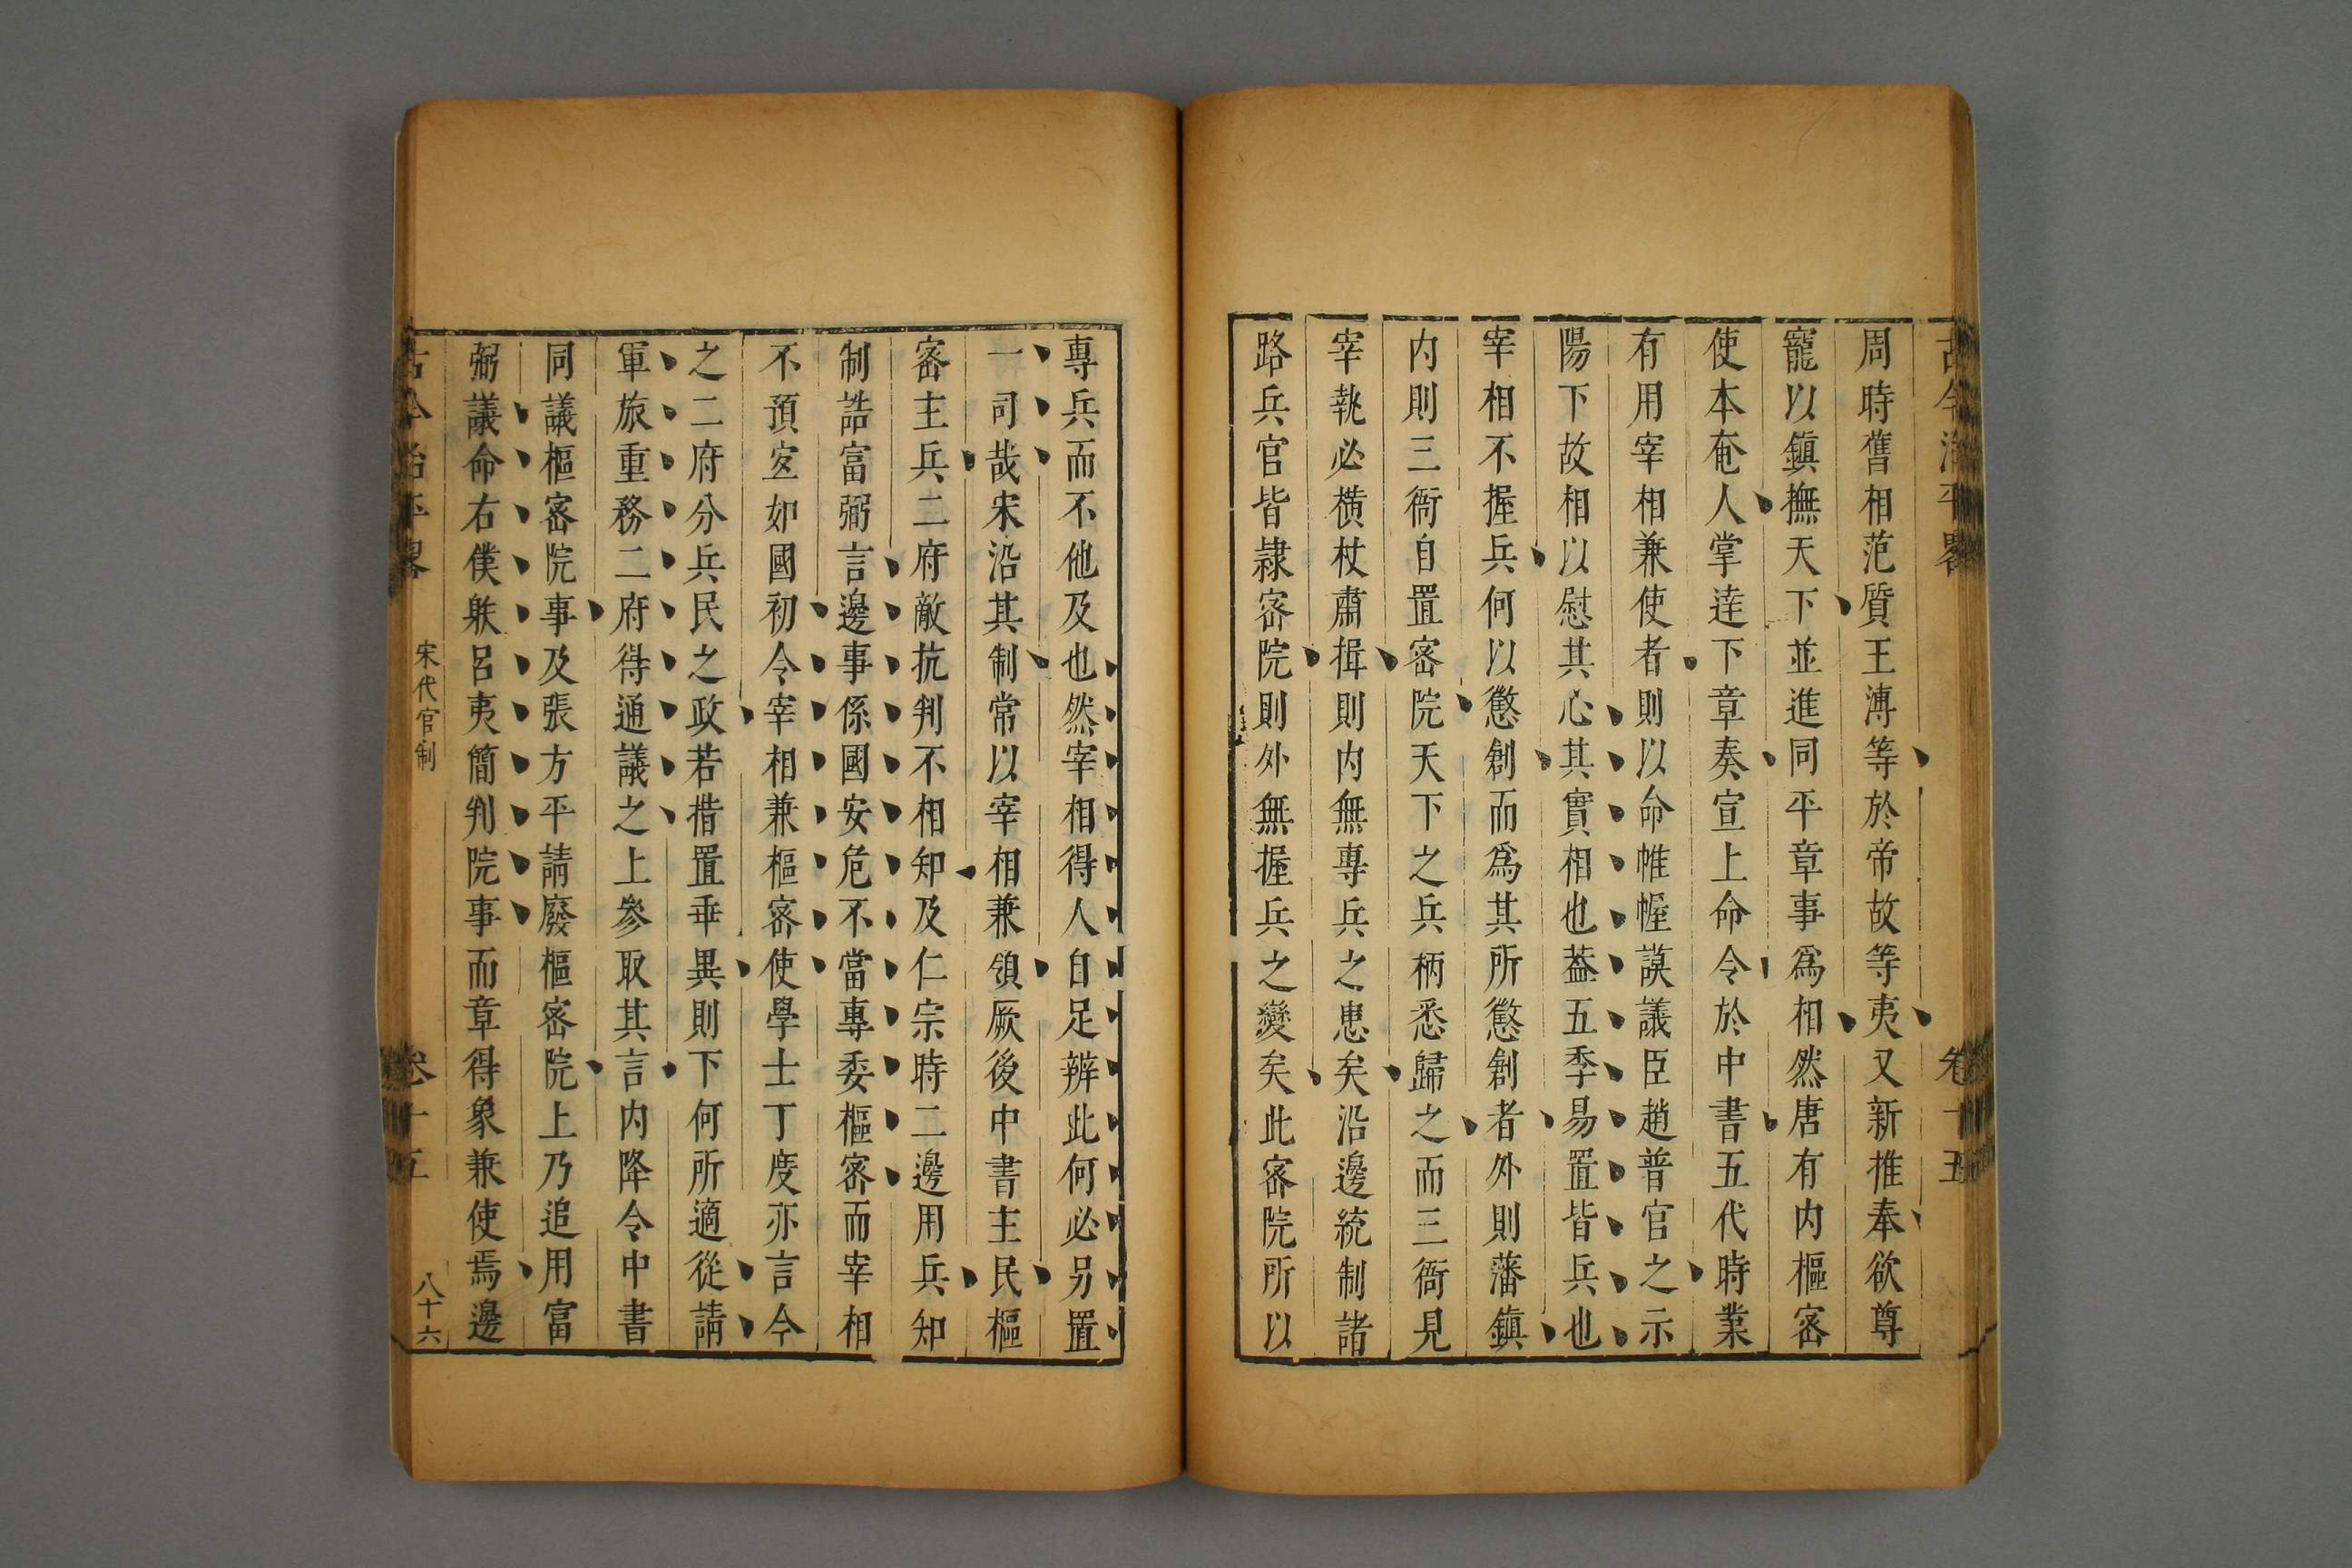 古今治平畧
卷十五
周時舊相范質王溥等於帝故等夷又新推奉欲尊
寵以鎮撫天下並進同平章事爲相然唐有内樞宻
使本奄人掌逹下章奏宣上命令於中書五代時業
有用宰相兼使者則以命帷幄謨議臣趙普官之示
陽下故相以慰其心其實相也葢五季易置皆兵也
宰相不握兵何以懲創而爲其所懲創者外則藩鎮
内則三衙自置宻院天下之兵柄悉歸之而三衙見
宰執必横杖肅揖則内無專兵之患矣沿邊統制諸
路兵官皆隸宻院則外無握兵之變矣此宻院所以
專兵而不他及也然宰相得人自足辨此何必另置
一司哉宋沿其制常以宰相兼領厥後中書主民樞
宻主兵二府敵抗判不相知及仁宗時二邊用兵知
制誥富弼言邊事係國安危不當專委樞宻而宰相
不預宐如國初令宰相兼樞宻使學士丁度亦言今
之二府分兵民之政若措置乖異則下何所適從請
軍旅重務二府得通議之上參取其言内降令中書
同議樞宻院事及張方平請廢樞宻院上乃追用富
弼議命右僕躲呂夷簡判院事而章得象兼使焉邊
古今治平畧
宋代官制
卷十五
八十六